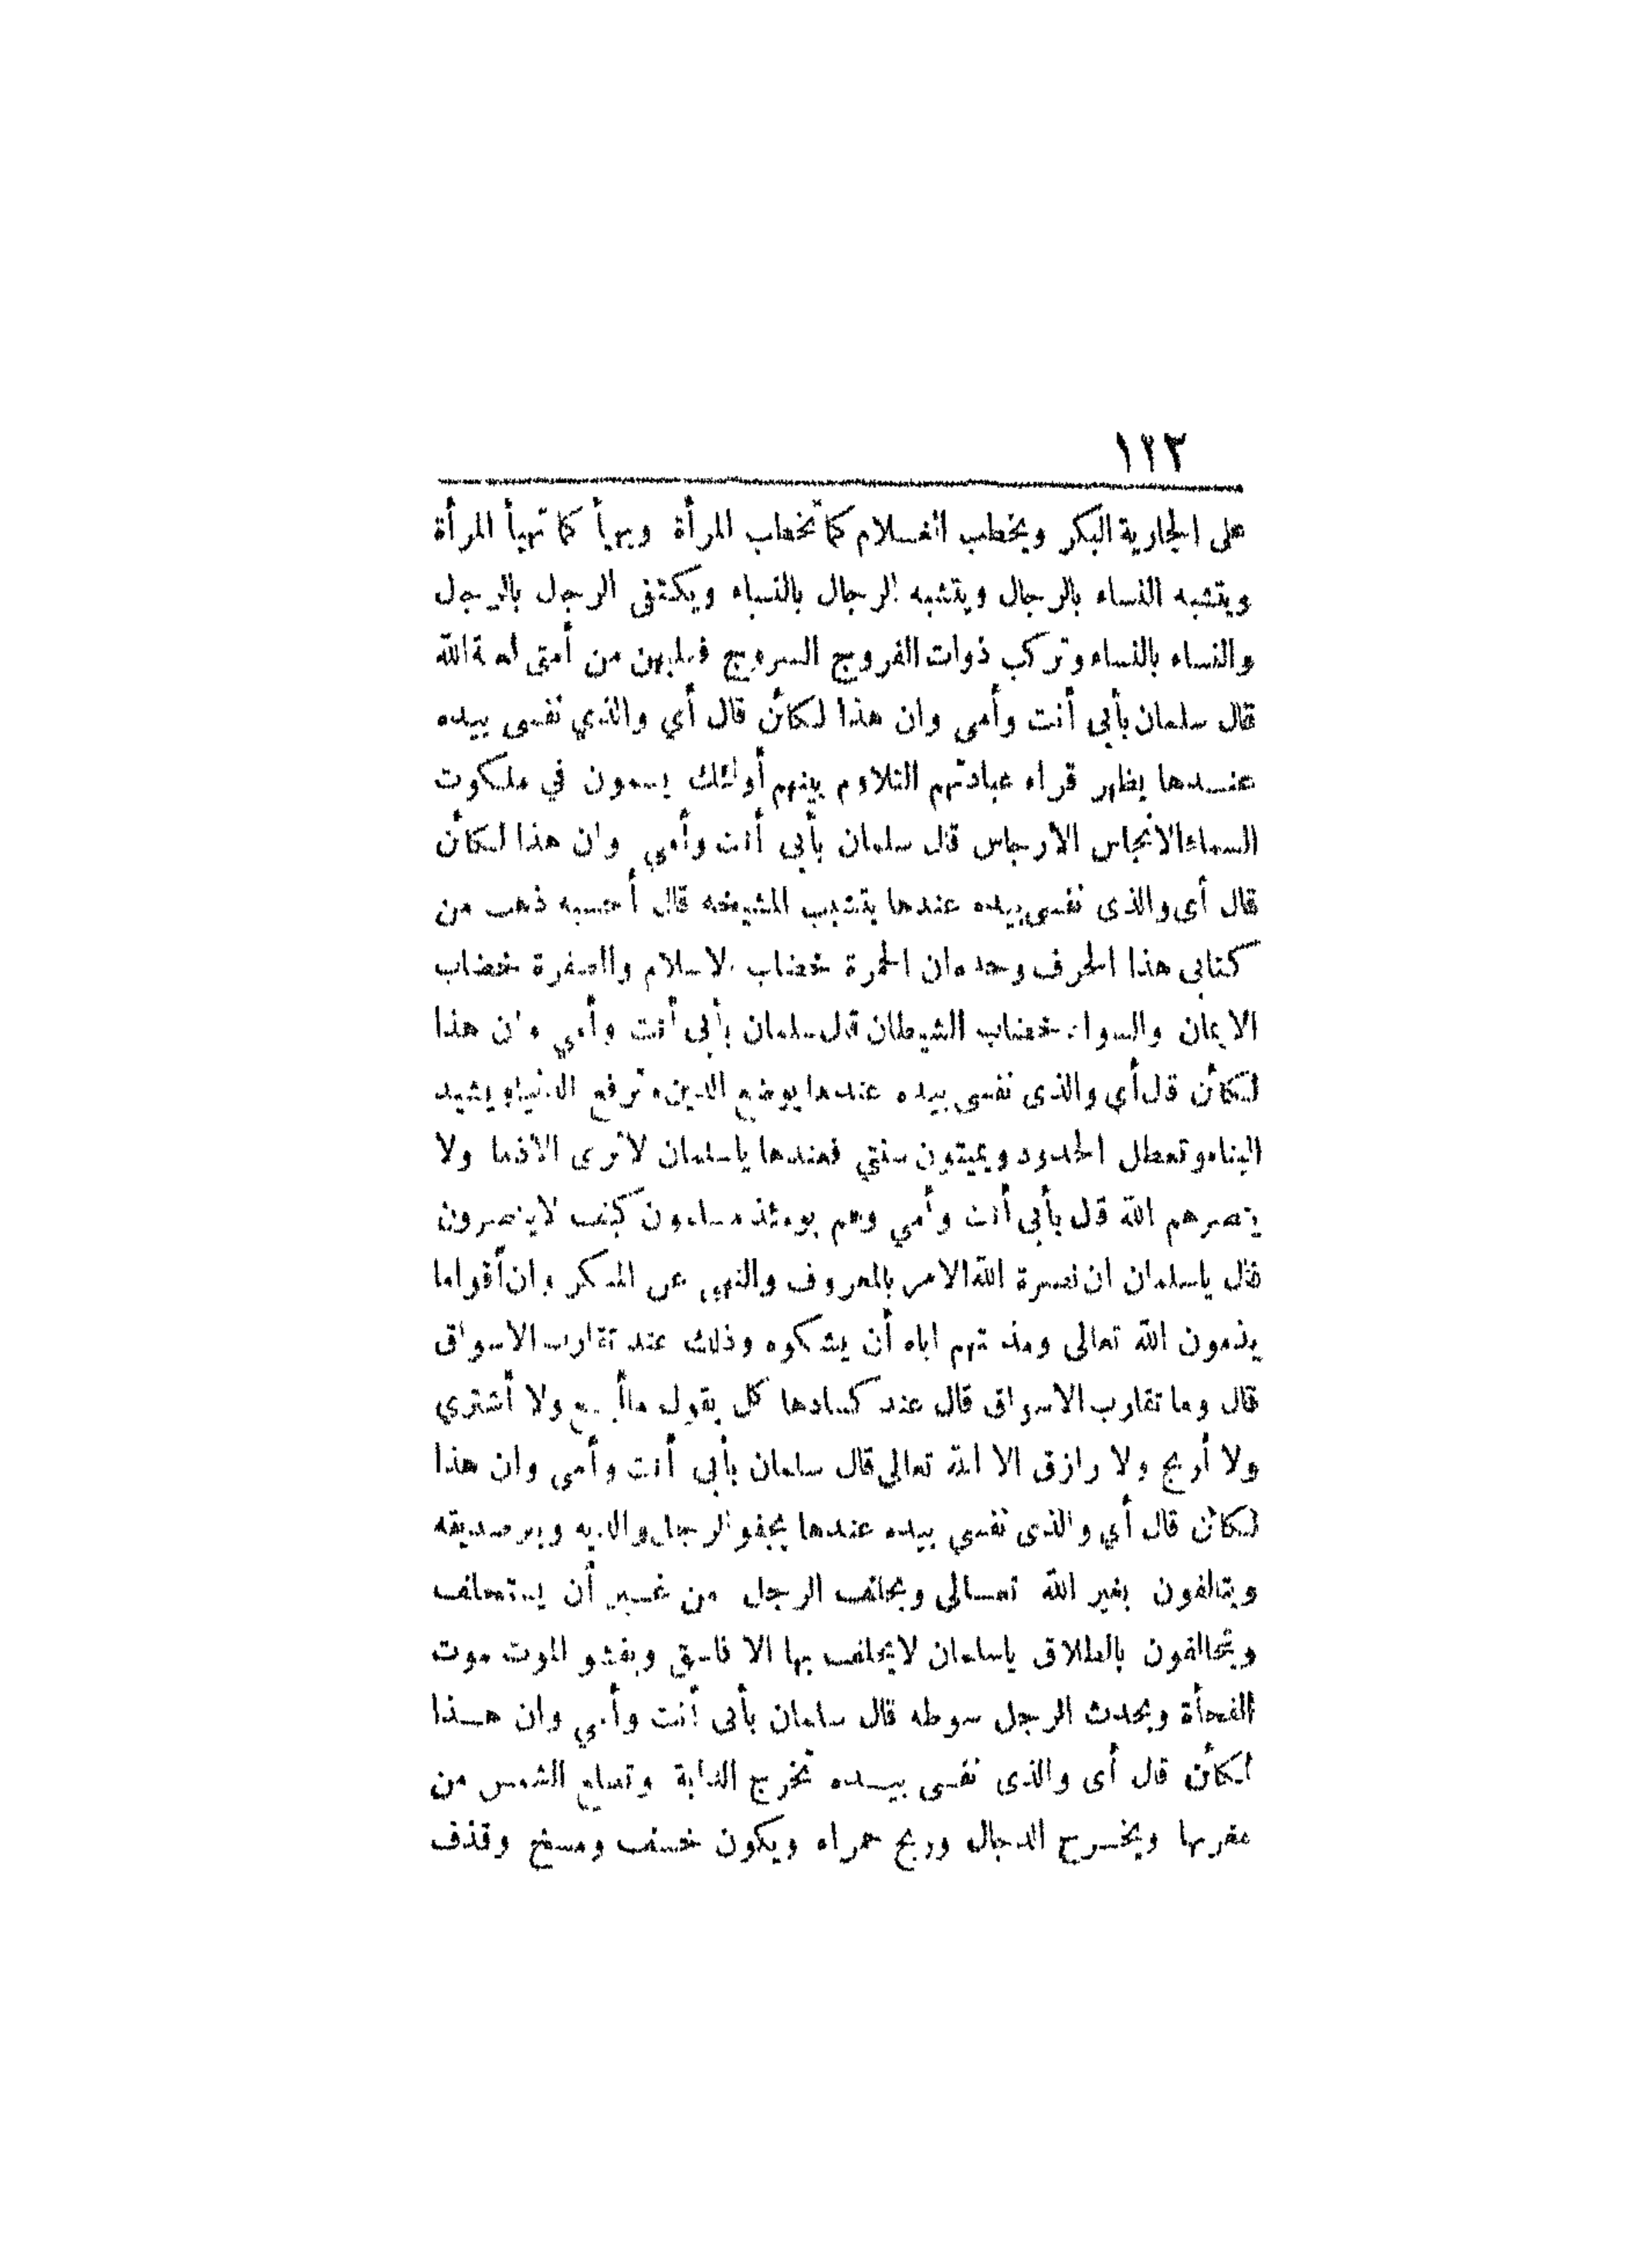 ١٢٣
على الجارية البكر ويخطب الغلام كما تخطب المرأة ويهيأ كما تهيأ المرأة
ويتشبه النساء بالرجال ويتشبه الرجال بالنساء ويكتفى الرجل بالرجل
والنساء بالنساء وتركب ذوات الفروج السروج فعليهن من أمتى لعنة الله
قال سلمان بأبي أنت وأمى وان هذا لكائن قال أي والذي نفسى بيده
عندها يظهر قراء عبادتهم التلاوم بينهم أولئك يسمون في ملكوت
السماء الانجاس الارجاس قال سلمان بأبى أنت وأمي وان هذا لكائن
قال أى والذى نفسى بيده عندها يتشبب المشيخة قال أحسبه ذهب من
كتابى هذا الحرف وحده ان الحمرة خضاب الاسلام والصفرة خضاب
الايمان والسواد خضاب الشيطان قال سلمان بأبى أنت وأمي وان هذا
لكائن قال أي والذى نفسى بيده عندها يوضع الدين وترفع الدنيا ويشيد
البناء وتعطل الحدود ويميتون سنتي فعندها ياسلمان لاترى الا ذما ولا
ينصرهم الله قال بأبى أنت وأمي وهم يومئذ مسلمون كيف لاينصرون
قال ياسلمان ان نصرة الله الامر بالمعروف والنهى عن المنكر وان أقواما
يذمون الله تعالى ومذمتهم اياه أن يشكوه وذلك عند تقارب الاسواق
قال وما تقارب الاسواق قال عند كسادها كل يقول ما أبيع ولا أشتري
ولا أربح ولا رازق الا الله تعالى قال سلمان بأبى أنت وأمى وان هذا
لكائن قال أي والذى نفسي بيده عندها يجفو الرجل والديه ويبر صديقه
ويتالفون بغير الله تعالى ويحلف الرجل من غير أن يستحلف
ويتحالفون بالطلاق ياسلمان لايحلف بها الا فاسق ويفشو الموت موت
الفجأة ويحدث الرجل سوطه قال سلمان بأبى أنت وأمي وان هذا
لكائن قال أى والذى نفسى بيده تخرج الدابة وتطلع الشمس من
مغربها ويخرج الدجال وريح حمراء ويكون خسف ومسخ وقذف